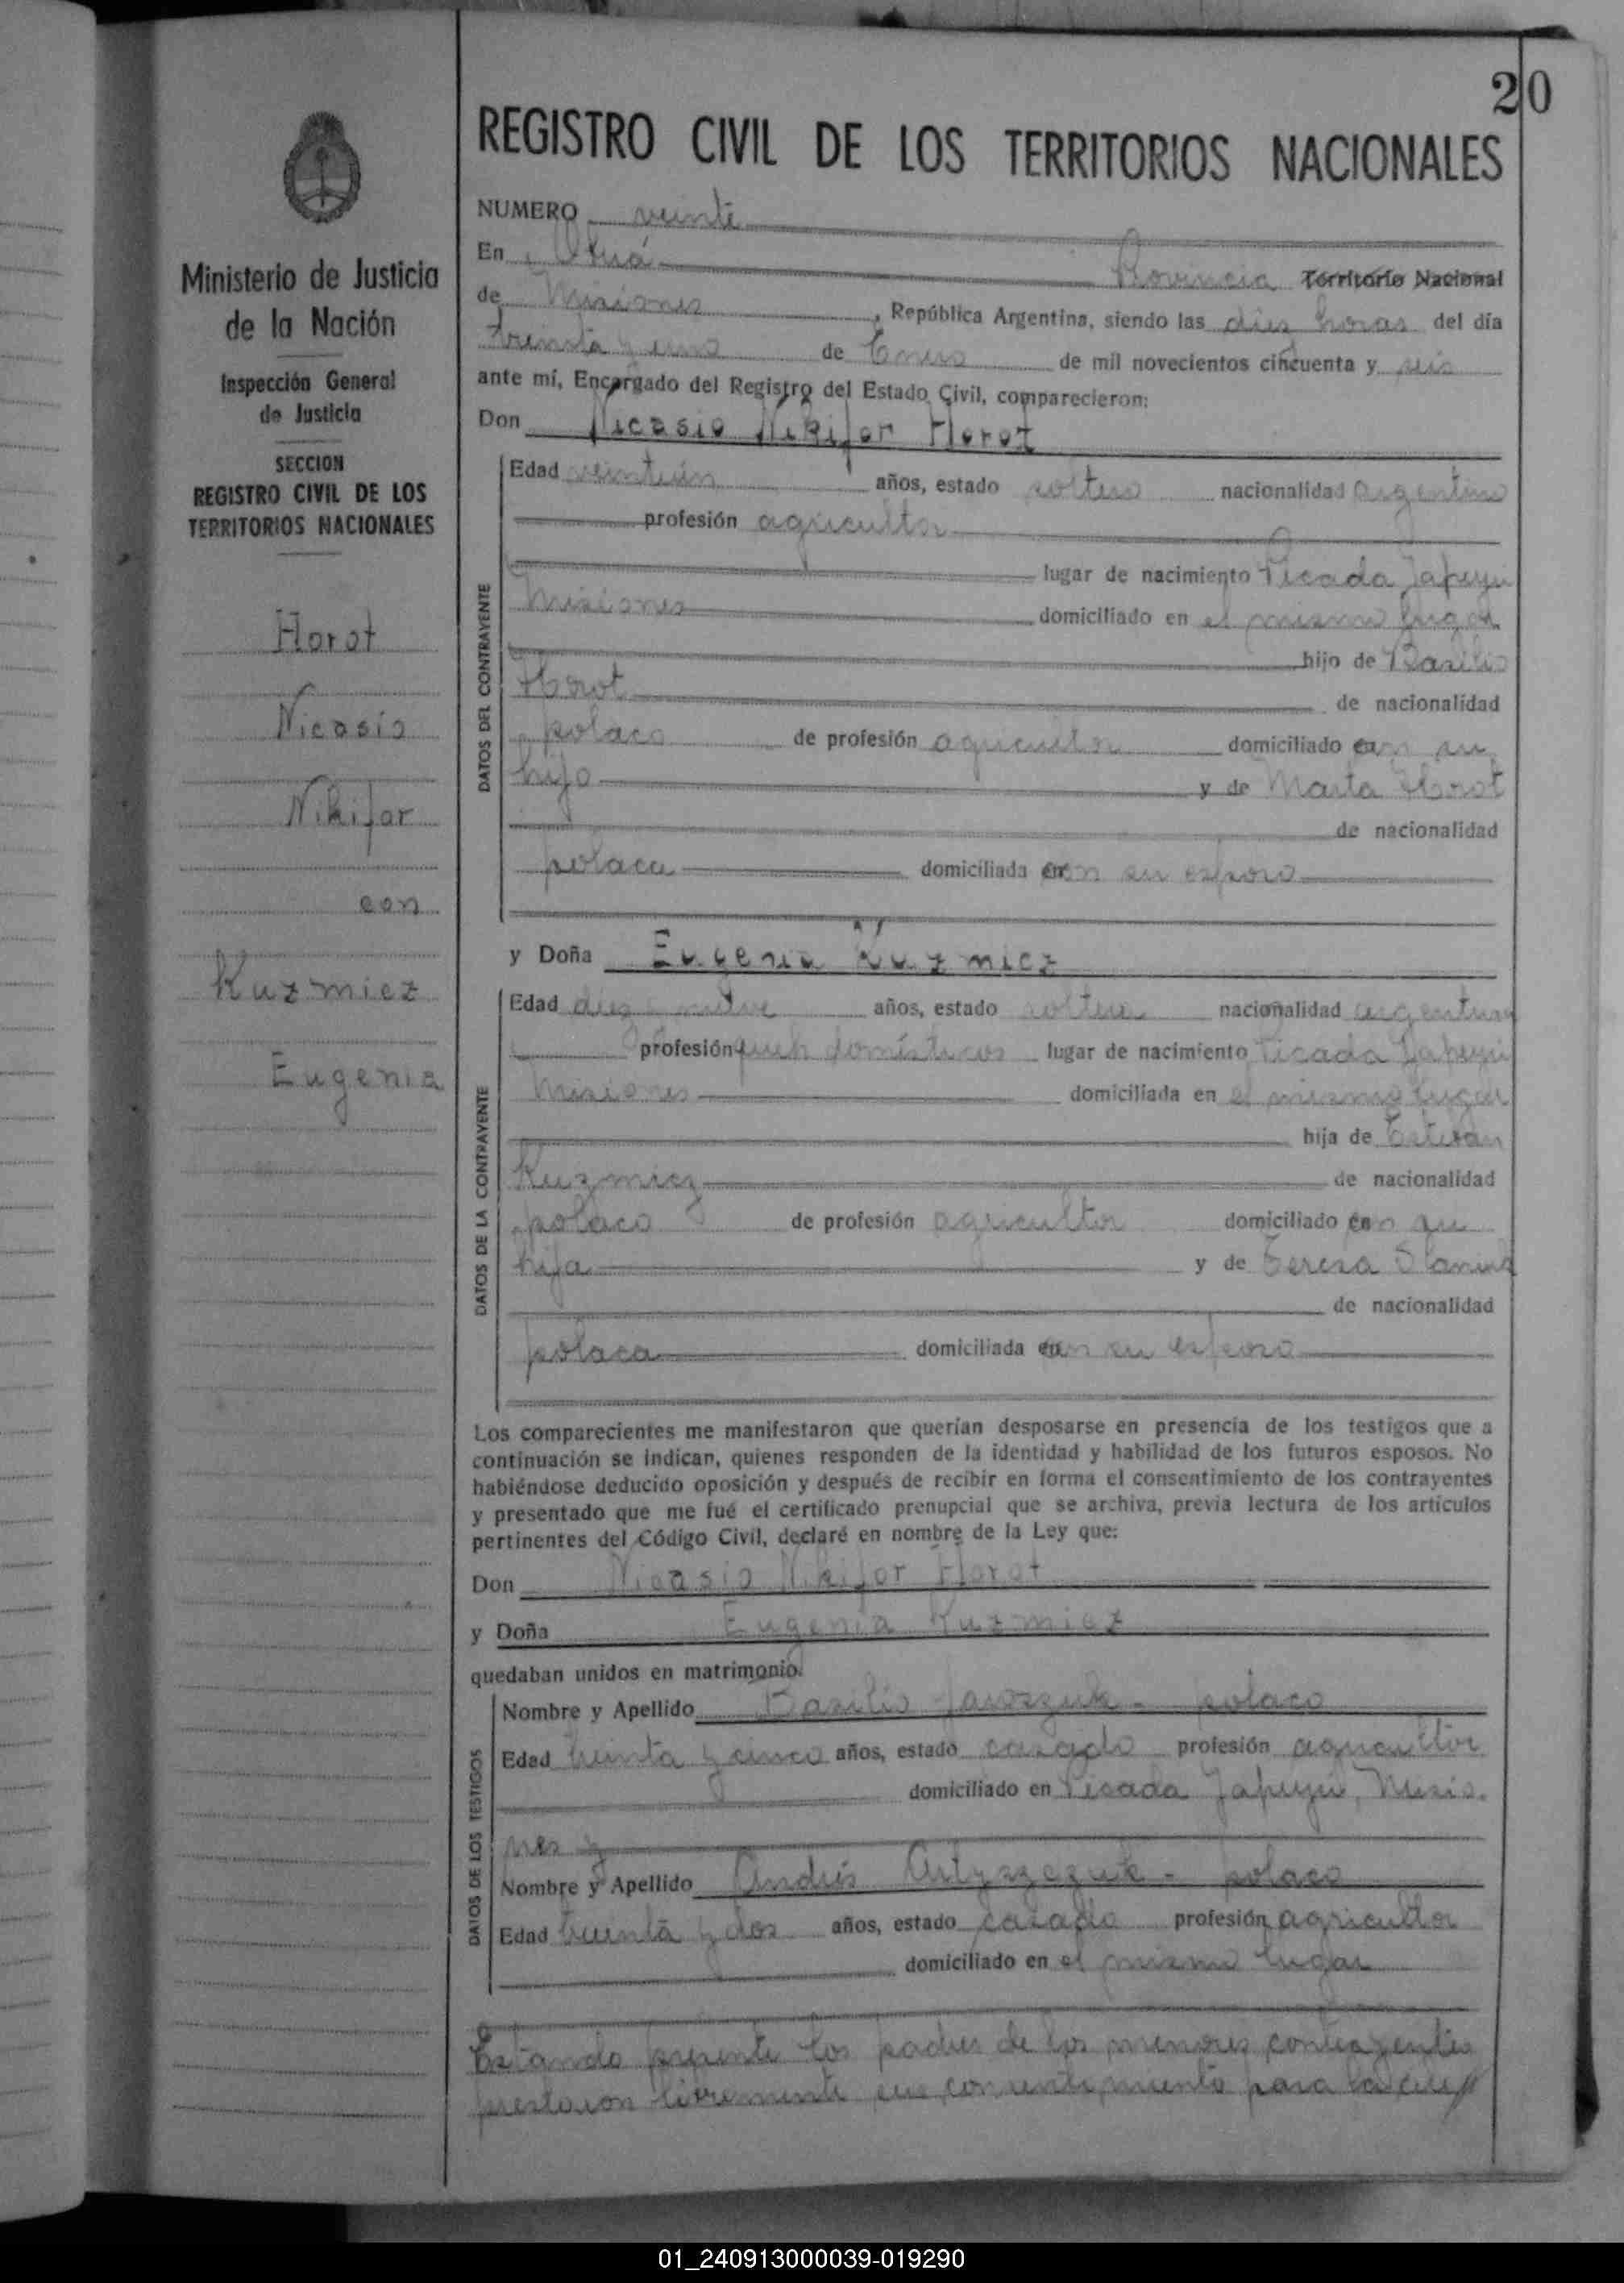 20
REGISTRO CIVIL DE LOS TERRITORIOS NACIONALES
Ministerio de Justicia
de la Nación
Inspección General
de Justicia
SECCION
REGISTRO CIVIL DE LOS
TERRITORIOS NACIONALES
Horot
Nicasio
Nikifor
con
Kuzmicz
Eugenia
NUMERO veinte
En Oberá Provincia Territorio Nacional
de Misiones, República Argentina, siendo las diez horas del día
treinta y uno de Enero de mil novecientos cincuenta y seis
ante mí, Encargado del Registro del Estado Civil, comparecieron:
Don Nicasio Nikifor Horot
DATOS DEL CONTRAYENTE
Edad veintiún años, estado soltero nacionalidad argentino
profesión agricultor
lugar de nacimiento Picada Yapeyú
Misiones domiciliado en el mismo lugar
hijo de Basilio
Horot de nacionalidad
polaco de profesión agricultor domiciliado con su
hijo y de Marta Horot
de nacionalidad
polaca domiciliada con su esposo
y Doña Eugenia Kuzmicz
DATOS DE LA CONTRAYENTE
Edad diez y nueve años, estado soltera nacionalidad argentina
profesión queh domésticos lugar de nacimiento Picada Yapeyú
Misiones domiciliada en el mismo lugar
hija de Esteban
Kuzmicz de nacionalidad
polaco de profesión agricultor domiciliado con su
hija y de Teresa
de nacionalidad
polaca domiciliada con su esposo
Los comparecientes me manifestaron que querían desposarse en presencia de los testigos que a
continuación se indican, quienes responden de la identidad y habilidad de los futuros esposos. No
habiéndose deducido oposición y después de recibir en forma el consentimiento de los contrayentes
y presentado que me fué el certificado prenupcial que se archiva, previa lectura de los artículos
pertinentes del Código Civil, declaré en nombre de la Ley que:
Don Nicasio Nikifor Horot
y Doña Eugenia Kuzmicz
quedaban unidos en matrimonio.
DATOS DE LOS TESTIGOS
Nombre y Apellido Basilio - polaco
Edad treinta y cinco años, estado casado profesión agricultor
domiciliado en Picada Yapeyú, Misio.
nes y
Nombre y Apellido Andrés - polaco
Edad treinta y dos años, estado casado profesión agricultor
domiciliado en el mismo lugar
Estando presente los padres de los menores contrayentes
prestaron libremente su consentimiento para la cele//
01_240913000039-019290